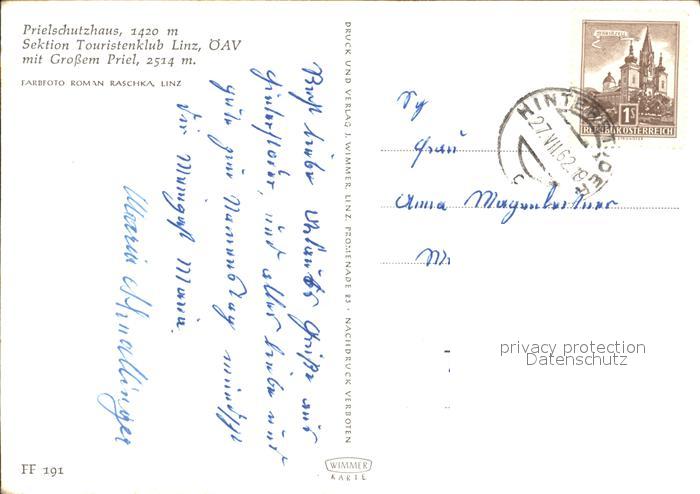 Prielschutzhaus, 1420 m
Sektion Touristenklub Linz, ÖAV
mit Großem Priel, 2514 m.
FARBFOTO ROMAN RASCHKA, LINZ
Recht liebe Urlaubs Grüße aus
Hinterstoder, und alles liebe und
gute zum Namenstag wünscht
Dir Maria.
Maria
FF 191
DRUCK UND VERLAG J. WIMMER, LINZ, PROMENADE 23 · NACHDRUCK VERBOTEN
WIMMER
KARTE
MARIAZELL
1S
REPUBLIK ÖSTERREICH
HINTERSTODER
27.VII.62.18
Frau
Anna
privacy protection
Datenschutz